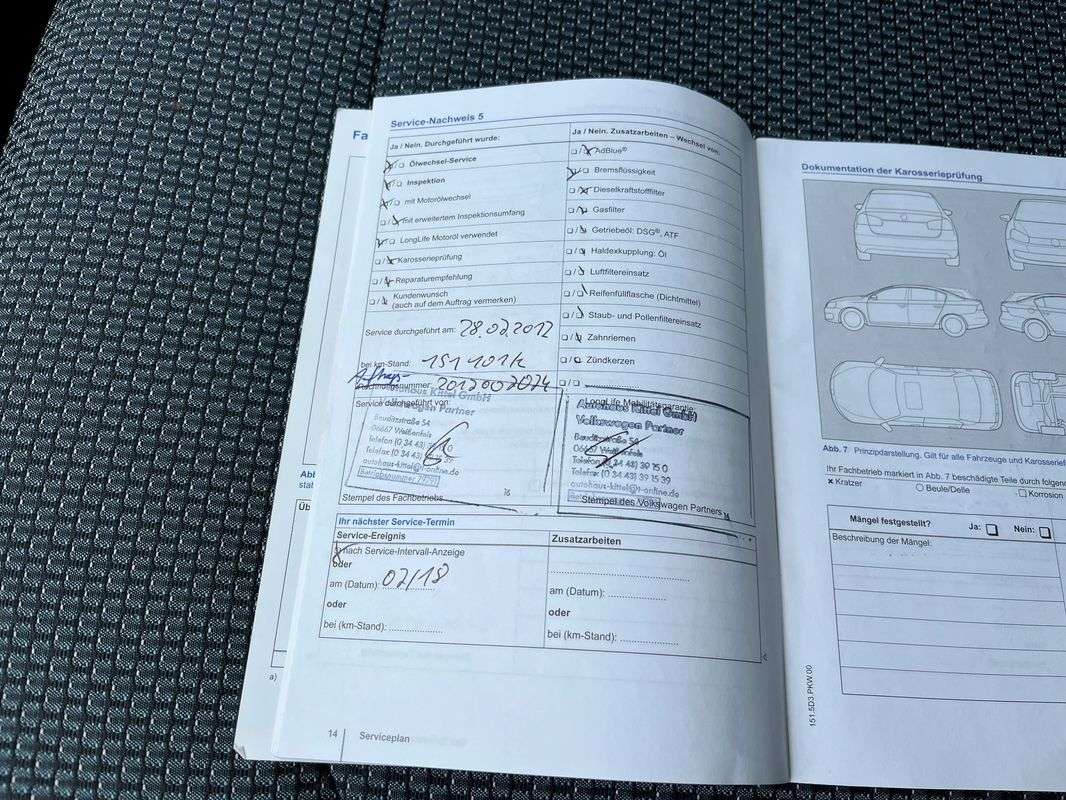 Fa
Service-Nachweis 5
Ja / Nein. Durchgeführt wurde:
Ölwechsel-Service
Inspektion
mit Motorölwechsel
mit erweitertem Inspektionsumfang
LongLife Motoröl verwendet
Karosserieprüfung
Reparaturempfehlung
Kundenwunsch
(auch auf dem Auftrag vermerken)
Service durchgeführt am: 28.02.2017
bei km-Stand: 151 101k
Auftrags-
Rechnungsnummer: 2017002024
Service durchgeführt von:
Autohaus Kittel GmbH
Volkswagen Partner
Bauditzstraße 54
06667 Weißenfels
Telefon (0 34 43)
Telefax (0 34 43)
autohaus-kittel@t-online.de
Stempel des Fachbetriebs
Ja / Nein. Zusatzarbeiten – Wechsel von:
AdBlue®
Bremsflüssigkeit
Dieselkraftstofffilter
Gasfilter
Getriebeöl: DSG®, ATF
Haldexkupplung: Öl
Luftfiltereinsatz
Reifenfüllflasche (Dichtmittel)
Staub- und Pollenfiltereinsatz
Zahnriemen
Zündkerzen
LongLife Mobilitätsgarantie:
Autohaus Kittel GmbH
Volkswagen Partner
Bauditzstraße 54
06667 Weißenfels
Telefon (0 34 43) 39 15 0
Telefax (0 34 43) 39 15 39
autohaus-kittel@t-online.de
Stempel des Volkswagen Partners
Ihr nächster Service-Termin
Service-Ereignis
nach Service-Intervall-Anzeige
oder
am (Datum): 02/18
oder
bei (km-Stand):
Zusatzarbeiten
am (Datum):
oder
bei (km-Stand):
14 Serviceplan
Abb
stat
Üb
a)
Dokumentation der Karosserieprüfung
Abb. 7 Prinzipdarstellung. Gilt für alle Fahrzeuge und Karosserief
Ihr Fachbetrieb markiert in Abb. 7 beschädigte Teile durch folgen
× Kratzer
Beule/Delle
Korrosion
Mängel festgestellt? Ja: Nein:
Beschreibung der Mängel:
151.5D3.PKW.00